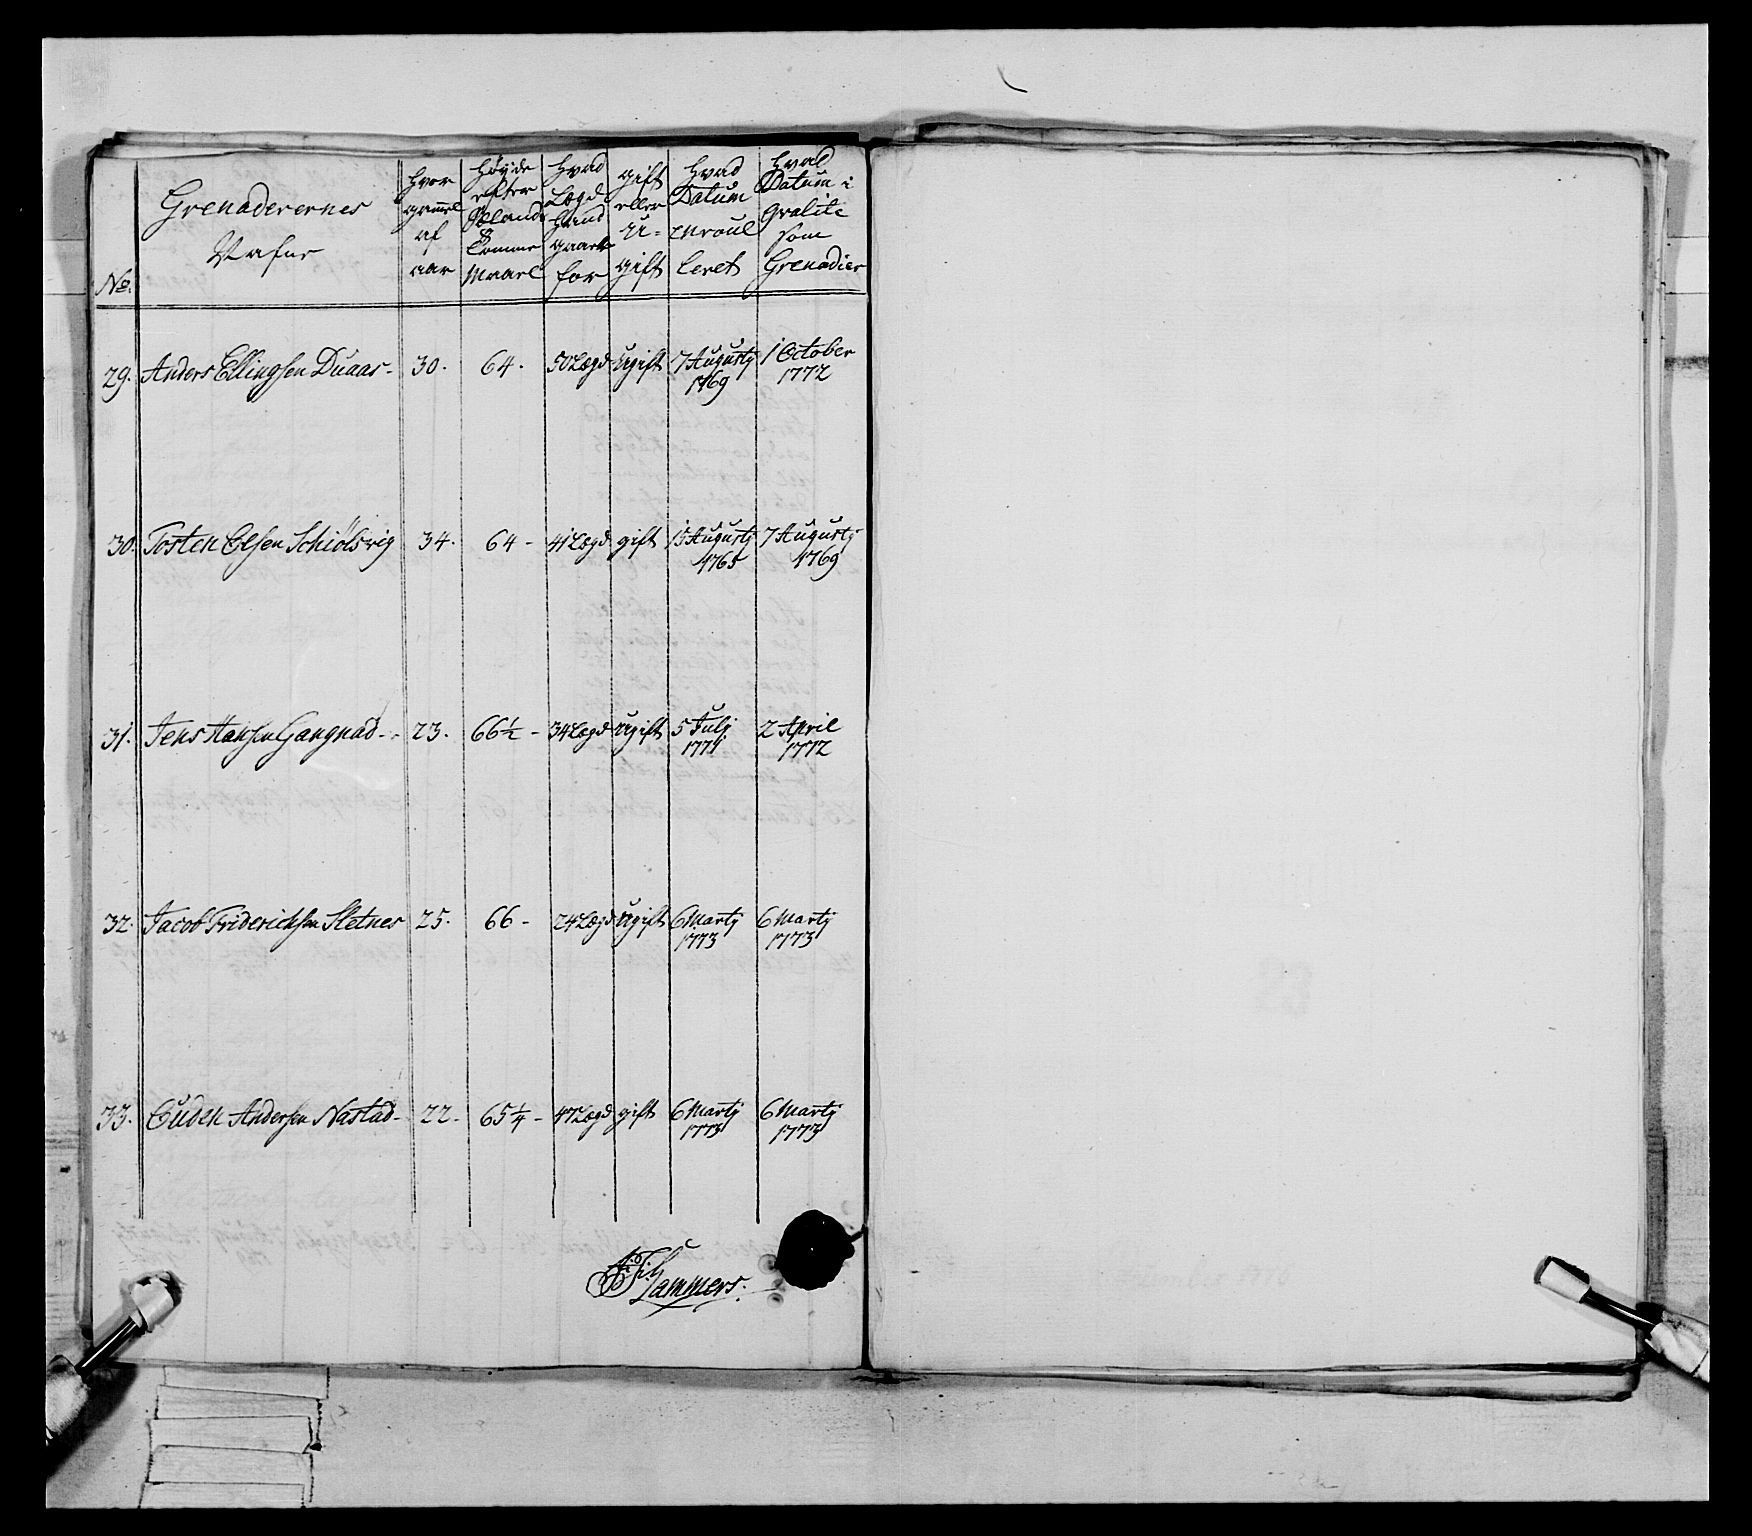 No. Grenaderernes Nafne | Hvor gammel af aar | Høyde efter Sælands Tomme Maael | Hvad Lægd hand gaaer for | gift eller u-gift | Hvad Datum enroulleret | Hvad Datum i Qvalite som Grenadier
29. Anders Ellingsen Duaas - 30. 64. 50 Lægd Ugift 7 Augusty 1769 1 October 1772
30. Tosten Olsen Schiölsvig 34. 64 - 41 Lægd gift 15 Augusty 1765 7 Augusty 1769
31. Jens Hansen Gangnad - - 23. 66½ - 34 Lægd Ugift 5 Julj 1771 2 April 1772
32. Jacob Friderichsen Sletner 25. 66 - 24 Lægd Ugift 6 Martj 1773 6 Martj 1773
33. Guden Andersen Nastad - 22 - 65¼ - 47 Lægd gift 6 Martj 1773 6 Martj 1773
Lammers.